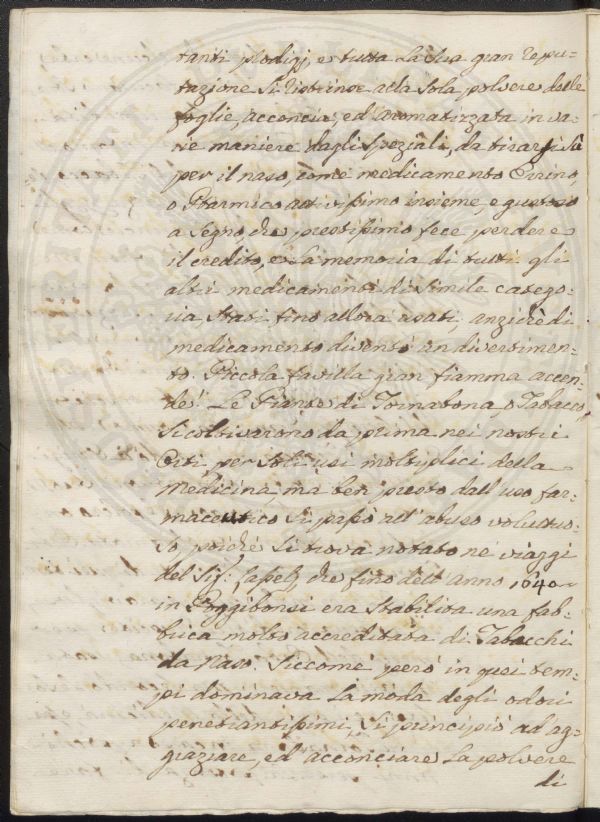 tanti prodigj, e tutta la sua gran repu-
tazione si ristrinse alla sola polvere delle
foglie, acconcia, ed aromatizzata in va-
rie maniere dagli Speziali, da tirarsi sù
per il naso, come medicamento Errino,
o Ptarmico attivissimo insieme, e gustoso
a segno, che prestissimo fece perdere
il credito, e la memoria di tutti gli
altri medicamenti di simile catego-
ria, stati fino allora usati, anziche di
medicamento diventò un divertimen-
to. Piccola favilla gran fiamma accen-
de! Le Piante di Tornabona, o Tabacco,
si coltivarono da prima nei nostri
Orti per soli usi moltiplici della
Medicina, ma ben presto dall'uso far-
maceutico si passò all'abuso voluttuo-
so, poiché si trova notato ne' viaggi
del Sig:, che fino dell'anno 1640
in Poggibonsi era stabilita una fab-
brica molto accreditata di Tabacchi
da Naso. Siccome però in quei tem-
pi dominava la moda degli odori
penetrantissimi, si principiò ad ag-
graziare, ed acconciare la polvere
di